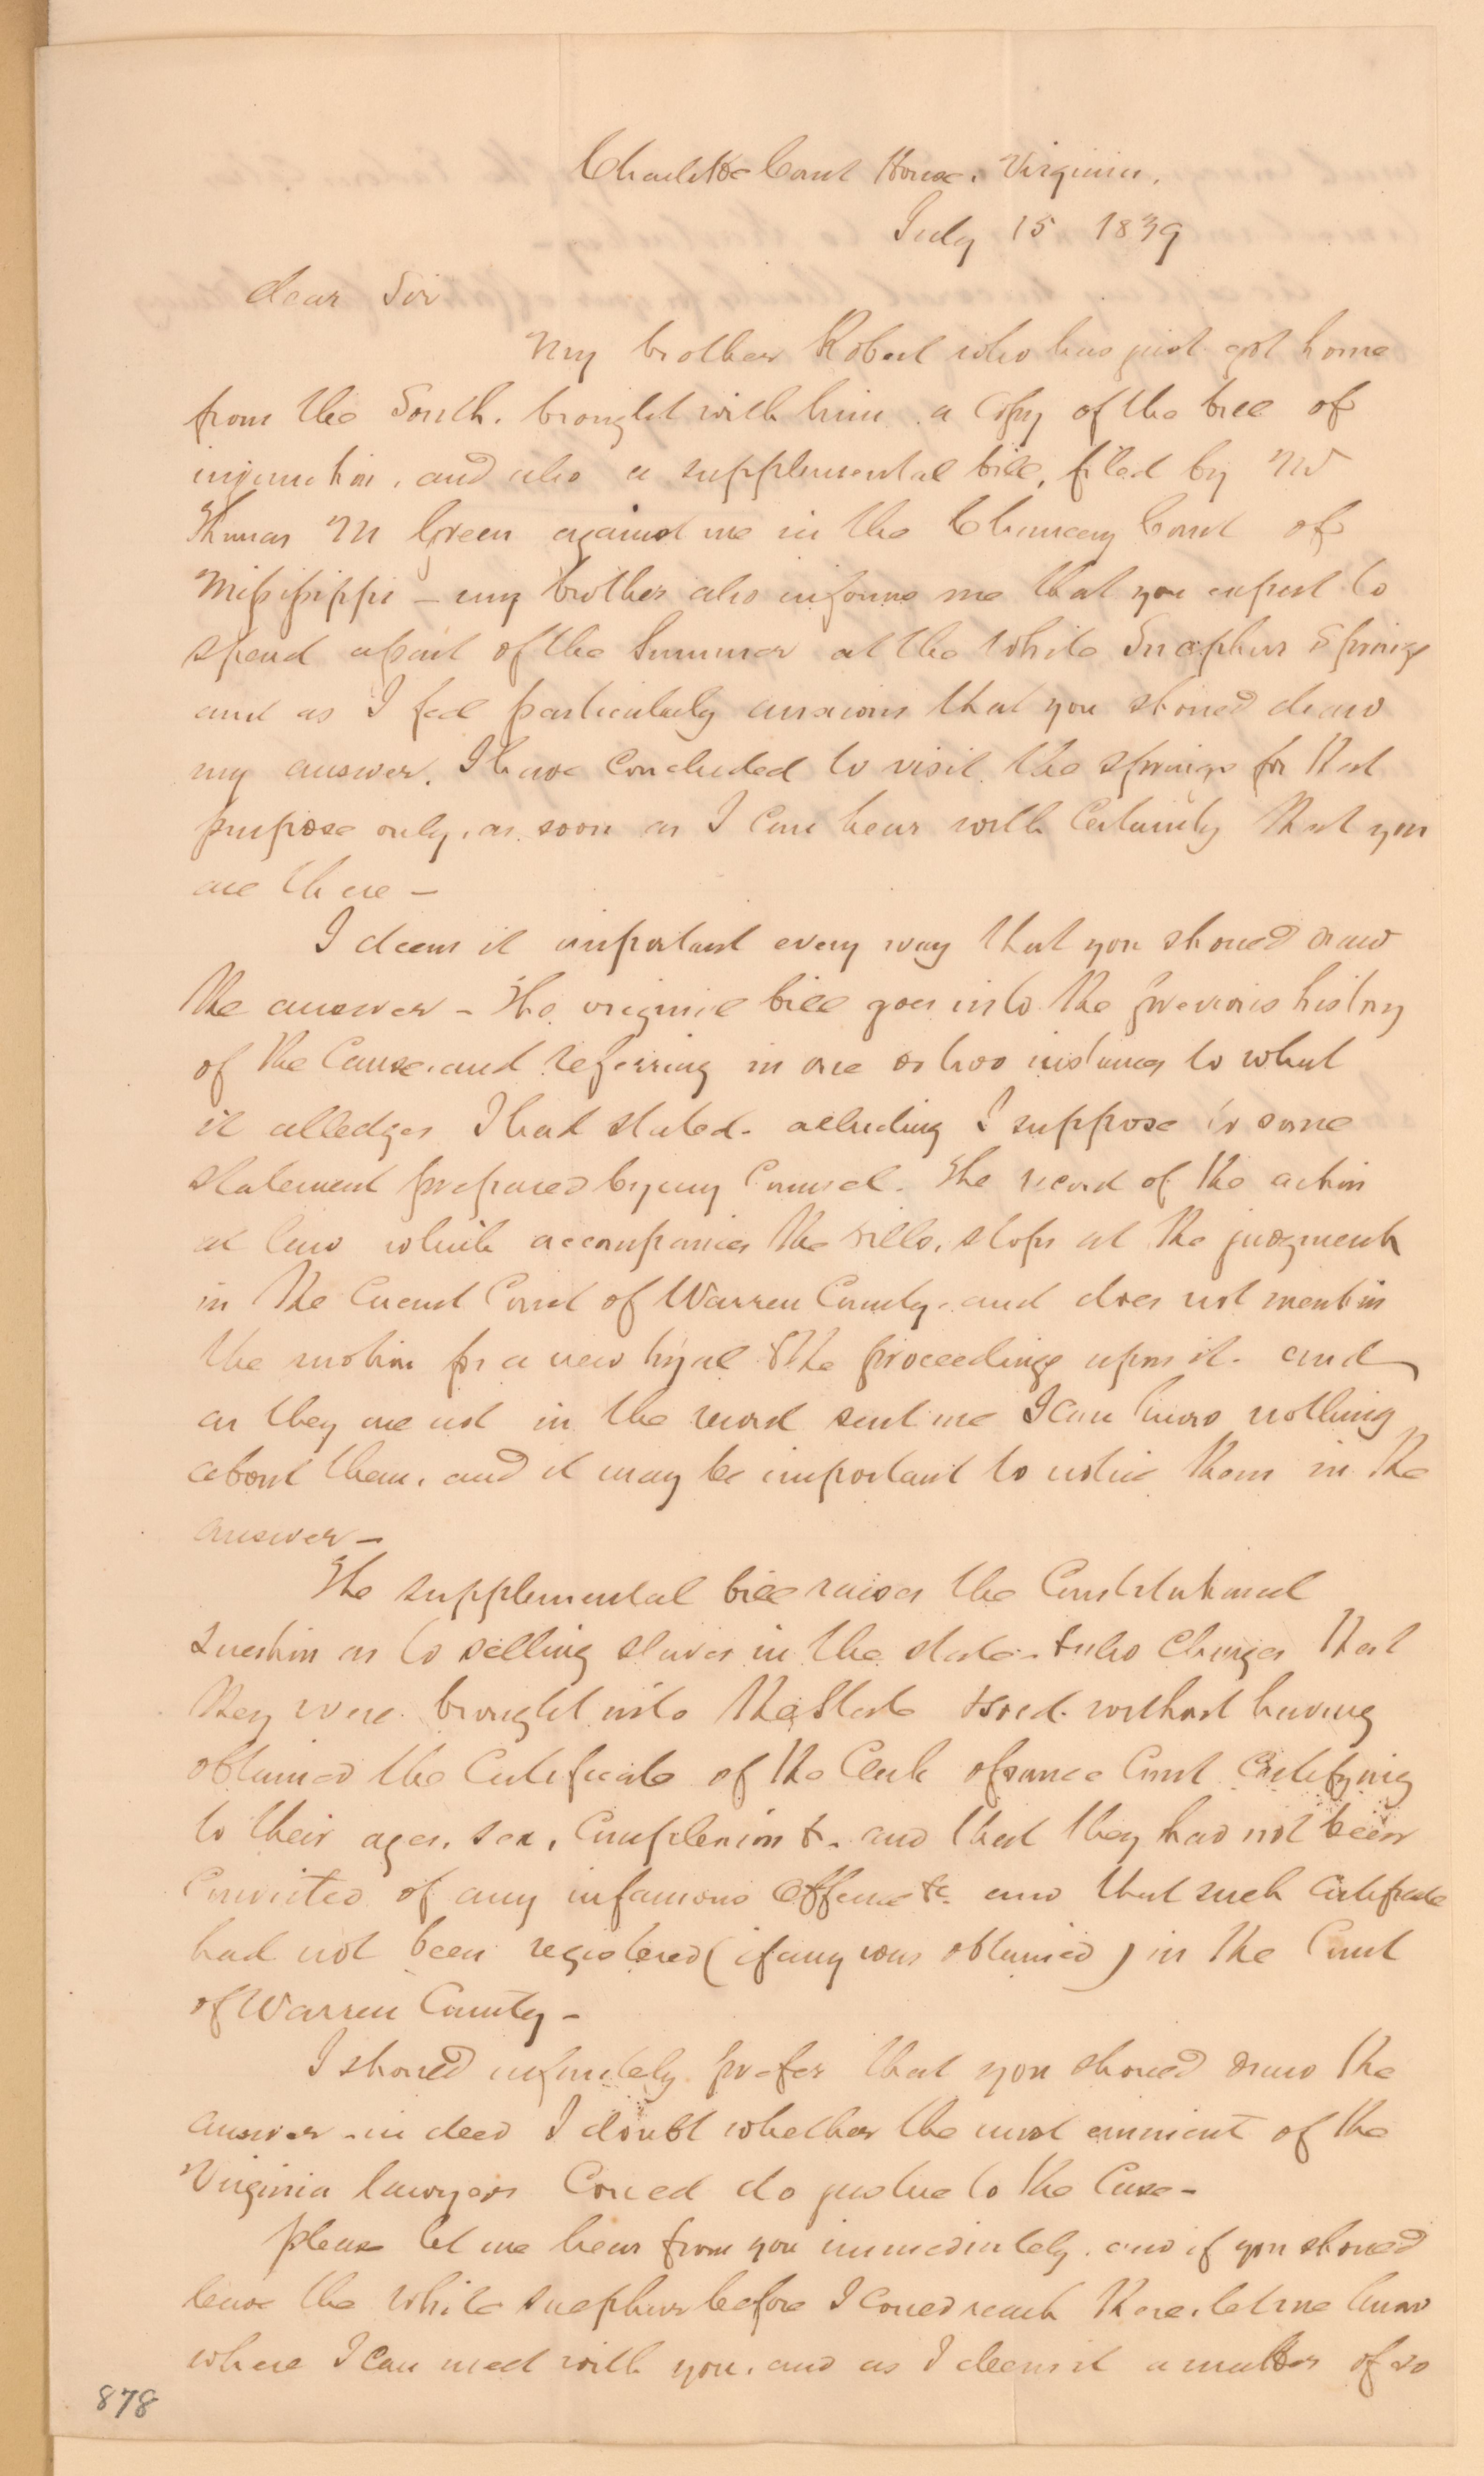 Charlotte Court House. Virginia.
July 15 1839
dear Sir
My brother Robert who has just got home
from the South. brought with him a Copy of the bill of
injunction, and also a supplemental bill, filed by Mr
Thomas M Green against me in the Chancery Court of
Missippippi – my brother also informs me that you expect to
spend a part of the Summer at the White Sulphur Springs
and as I feel particularly anxious that you should draw
my answer. I have Concluded to visit the springs for that
purpose only, as soon as I Can hear with Certainty that you
are there –
I deem it important every way that you should draw
the answer – The original bill goes into the previous history
of the Cause, and referring in one or two instances to what
it alledges I had stated. alluding I suppose to some
statement prepared by my Counsel. The record of the action
at law which accompanies the bills, stops at the judgment
in the Circuit Court of Warren County. and does not mention
the motion for a new tryal & the proceedings upon it. and
as they are not in the record sent me I can know nothing
about them, and it may be important to notice them in the
answer –
The supplemental bill raises the Constitutional
question as to selling slaves in the state. & also Charges that
they were brought into the State & sold. without having
obtained the Certificate of the Clerk of some Court Certifying
to their ages, sex, Complexion &. and that they had not been
Convicted of any infamous Offence &c. and that such Certificate
had not been registered (if any was obtained) in the Court
of Warren County –
I should infinitely prefer that you should draw the
answer – indeed I doubt whether the most eminent of the
Virginia lawyers Could do justice to the Case –
please let me hear from you immediately. and if you should
leave the White Sulphur before I Could reach there, let me know
where I Can meet with you, and as I deem it a matter of so
878